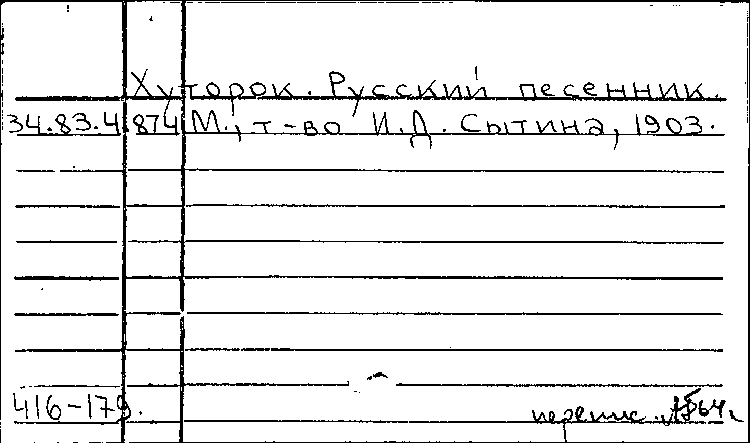 Хуторок. Русский песенник.
34.83.4 874 М., т-во И.Д. Сытина, 1903.
416-179.
перепис.